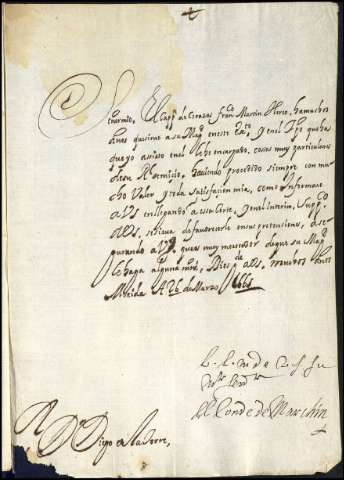 El Capp.n de Corazas fran.co Martin ha muchos
años que sirue a su Mag.d en este ex.to, y en el tpo que ha
que yo assisto en el le he encargado cosas muy particulares
de su Rl seruicio, hauiendo procedido siempre con mu
cho Valor y toda satisfacion mia, como Informare
a VS en llegando a essa Corte, y en el interin, Supp.co
a VS. se sirua de fauorecerle en sus pretensiones, ase
gurando a VS. que es muy merecedor de que su Mag.d
le haga alguna mrd, Dios g.de a VS. muchos años
Merida A 26 de Marzo 1661
B. L. M. de V. S. su
El Conde de Marchin
S.r D.n Diego de la Torre,